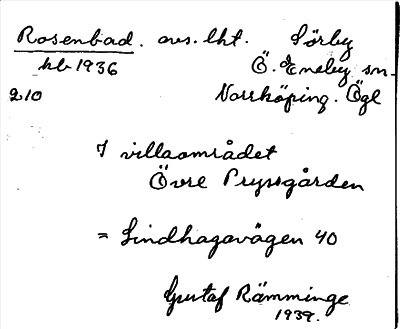 Rosenbad. avs. lht. Sörby
kb 1936 Ö. Eneby sn.
210 Norrköping. Ögl
I villaområdet
Övre Pryssgården
= Lindhagavägen 40
Gustaf Rämminge
1939.